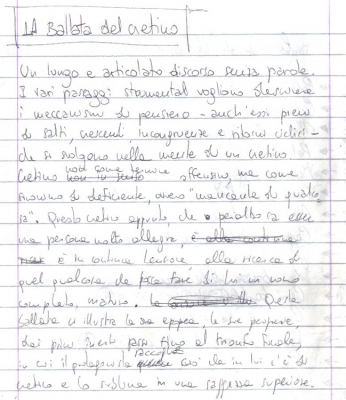 LA Ballata del cretino
Un lungo e articolato discorso senza parole.
I vari passaggi strumentali vogliono descrivere
i meccanismi di pensiero - anch'essi pieni
di salti, crescenti incongruenze e ritorni ciclici -
che si svolgono nella mente di un cretino.
Cretino non come termine offensivo, ma come
sinonimo di deficiente, ovvero "mancante di qualco
sa". Questo cretino appunto, che peraltro sa essere
una persona molto allegra,
è in continua tensione alla ricerca di
quel qualcosa che possa fare di lui un uomo
completo, maturo. Questa
ballata ci illustra la sua epopea, le sue
dai primi incerti passi fino al trionfo finale,
in cui il protagonista raccoglie ciò che in lui c'è di
cretino e lo sublima in una saggezza superiore.